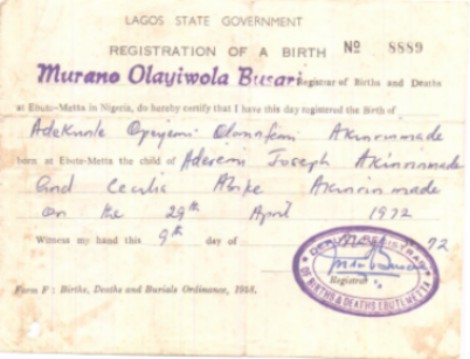 LAGOS STATE GOVERNMENT
REGISTRATION OF A BIRTH Nº 8889
Murano Olayiwola Busari Registrar of Births and Deaths
at Ebute-Metta in Nigeria, do hereby certify that I have this day registered the Birth of
Adekunle Opeyemi Olorunfemi Akinrinmade
born at Ebute-Metta the child of Aderemi Joseph Akinrinmade
and Cecilia Abike Akinrinmade
on the 29th April 1972
Witness my hand this 9th day of 72
DEPUTY REGISTRAR
Registrar
OF BIRTHS & DEATHS EBUTE METTA
Form F : Births, Deaths and Burials Ordinance, 1958.